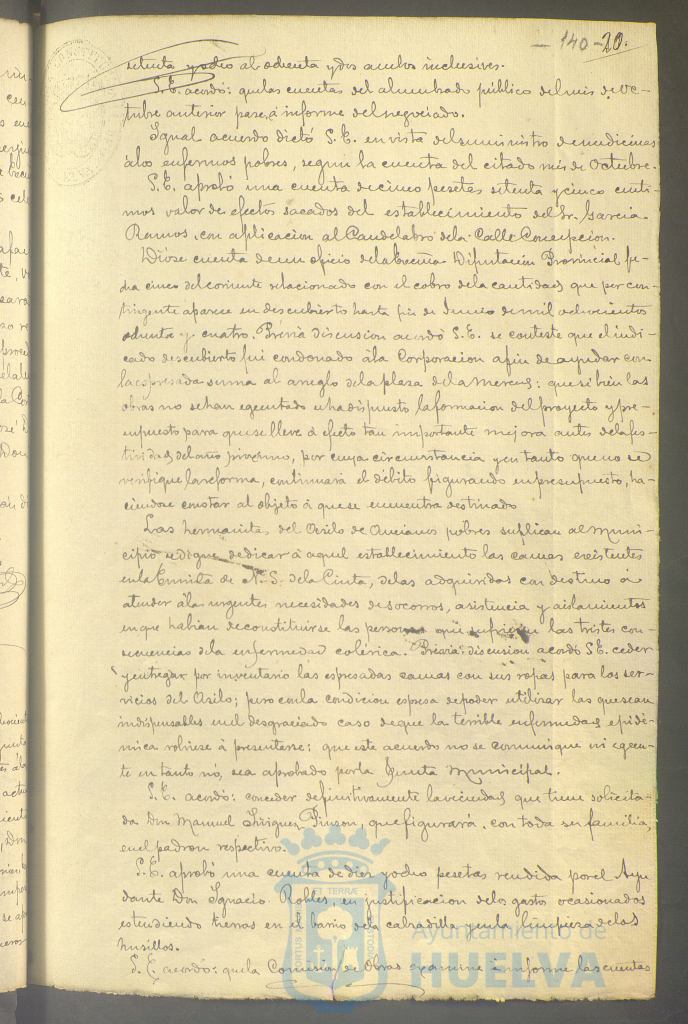 - 140 - 20.
setenta y ocho al ochenta y dos ambos inclusives.
S.E. acordó: que las cuentas del alumbrado público del mes de Oc-
tubre anterior pase á informe del negociado.
Igual acuerdo dictó S.E. en vista del suministro de medicinas
á los enfermos pobres, según la cuenta del citado mes de Octubre.
S.E. aprobó una cuenta de cinco pesetas setenta y cinco cénti-
mos valor de efectos sacados del establecimiento del Sr. Garcia
Ramos, con aplicacion al Candelabro de la Calle Concepcion.
Dióse cuenta de un oficio de la Excma Diputación Provincial fe-
cha cinco del corriente relacionado con el cobro de la cantidad que por con-
tingente aparece en descubierto hasta fin de Junio de mil ochocientos
ochenta y cuatro. Prévia discusion acordó S.E. se conteste que el indi-
cado descubierto fué condonado á la Corporacion a fin de ayudar con
la espresada suma al arreglo de la plaza de la Merced: que si bien las
obras no se han egecutado se ha dispuesto la formacion del proyecto y pre-
supuesto para que se lleve á efecto tan importante mejora antes de las fes-
tividades del año próximo, por cuya circunstancia y en tanto que no se
verifique la reforma, continuará el débito figurando en presupuesto, ha-
ciendose constar al objeto á que se encuentra destinado
Las hermanitas del Asilo de Ancianos pobres suplican al Muni-
cipio se digne dedicar á aquel establecimiento las camas existentes
en la Ermita de N. S. de la Cinta, de las adquiridas con destino á
atender á las urgentes necesidades de socorros, asistencia y aislamientos
en que habian de constituirse las personas que sufriesen las tristes con-
secuencias de la enfermedad colérica. Prévia discusion acordó S.E. ceder
y entregar por inventario las espresadas camas con sus ropas para los ser-
vicios del Asilo; pero con la condicion espresa de poder utilizar las que sean
indispensables en el desgraciado caso de que la terrible enfermedad epidé-
mica volviese á presentarse: que este acuerdo no se comunique ni egecu-
te en tanto nó, sea aprobado por la Junta Municipal.
S.E. acordó: conceder definitivamente la vecindad que tiene solicita-
da Don Manuel Iñiguez Pinzon, que figurará con toda su familia,
en el padron respectivo.
S.E. aprobó una cuenta de diez y ocho pesetas rendida por el Ayu-
dante Don Ignacio Robles, en justificacion de los gastos ocasionados
estendiendo tierras en el barrio de la calzadilla y en la limpieza de los
husillos.
S.E. acordó: que la Comision de Obras examine é informe las cuentas
PORTUS MARIS ET TERRÆ CUSTODIA
Ayuntamiento de
HUELVA